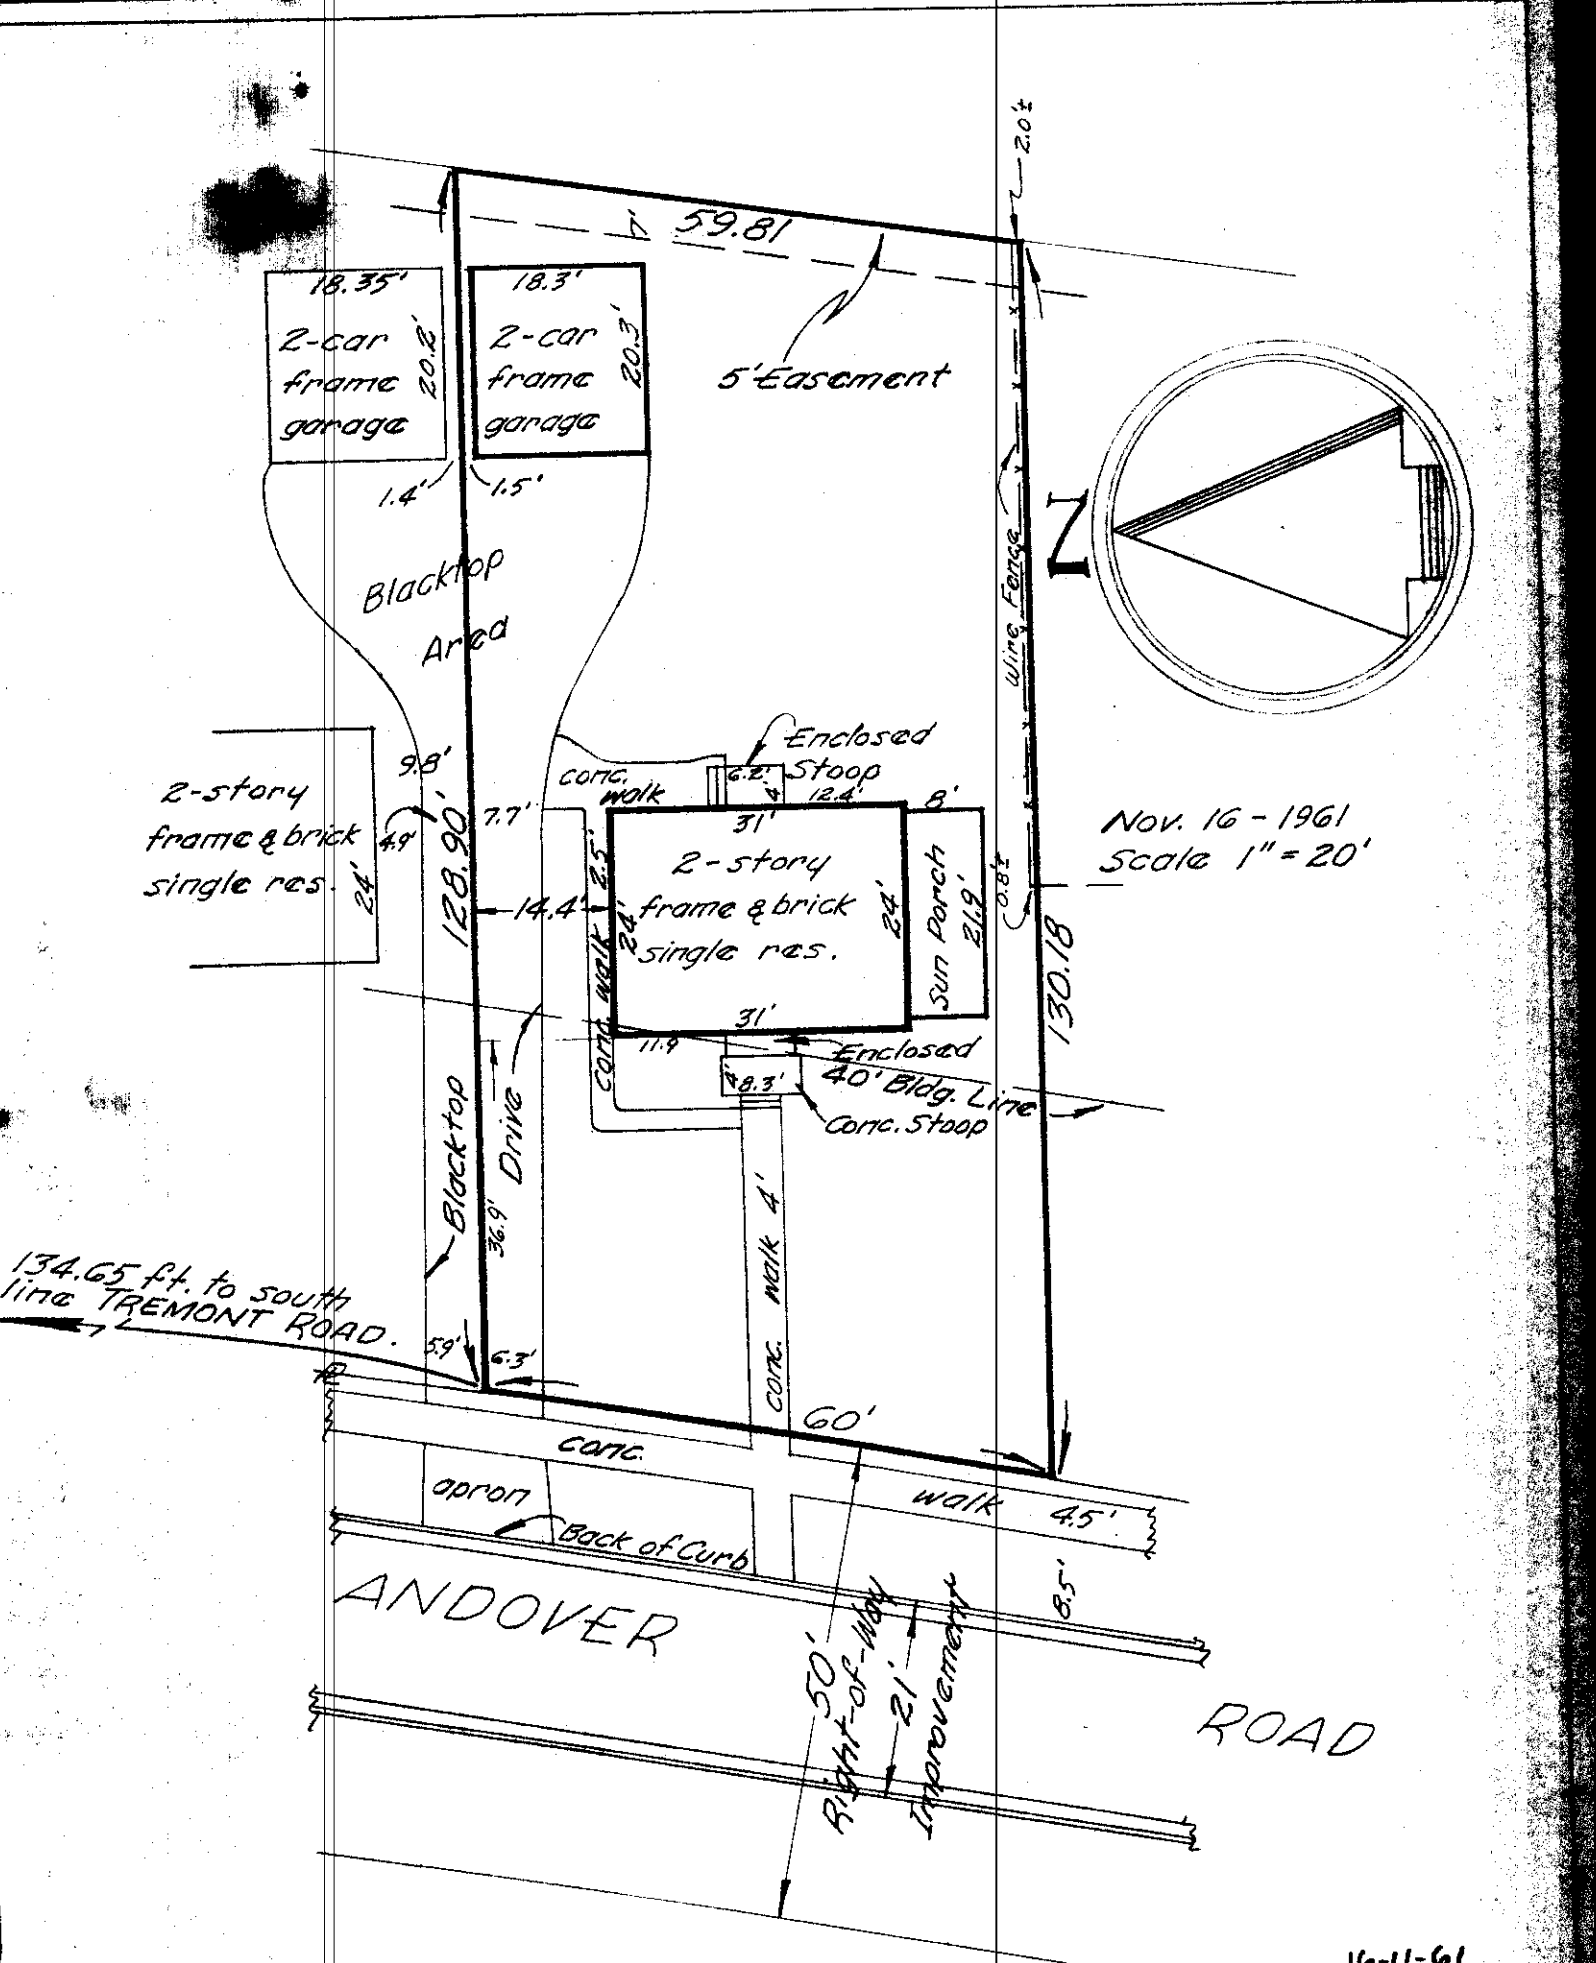 2.0'±
59.81
18.35'
2-car
frame
garage
20.2'
18.3'
2-car
frame
garage
20.3'
5' Easement
1.4'
1.5'
Blacktop
Area
Wire Fence
N
Enclosed
Stoop
conc.
walk
6.2'
4'
12.4'
9.8'
7.7'
4.9'
2-story
frame & brick
single res.
24'
128.90'
14.4'
2.5'
conc. walk
31'
2-story
frame & brick
single res.
24'
24'
31'
8'
Sun Porch
21.9'
0.8'±
130.18
Nov. 16 - 1961
Scale 1" = 20'
11.9
Enclosed
40' Bldg. Line
4'
8.3'
Conc. Stoop
Blacktop
Drive
36.9'
conc. walk 4'
134.65 ft. to south
line TREMONT ROAD.
5.9'
6.3'
60'
conc.
walk
4.5'
apron
Back of Curb
8.5'
ANDOVER
ROAD
50'
Right-of-Way
21'
Improvement
16-11-61